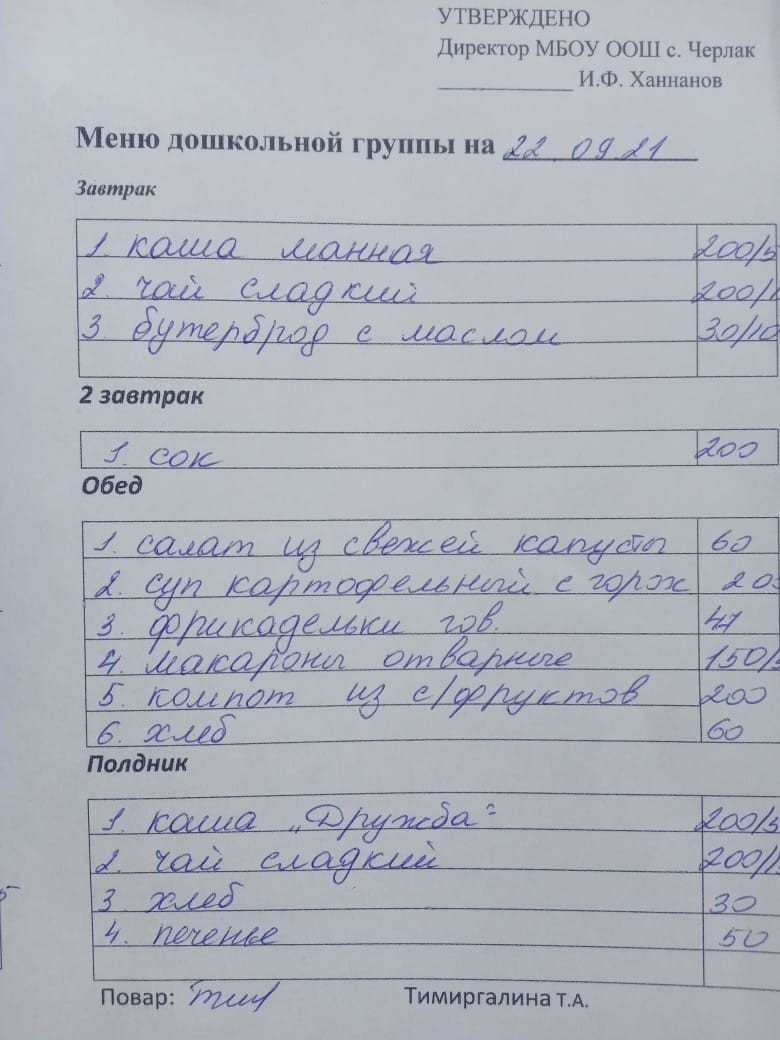 УТВЕРЖДЕНО
Директор МБОУ ООШ с. Черлак
____________ И.Ф. Ханнанов
Меню дошкольной группы на 22.09.21
Завтрак
1. каша манная 200/5
2. чай сладкий 200/1
3. бутерброд с маслом 30/10
2 завтрак
1. сок 200
Обед
1. салат из свежей капусты 60
2. суп картофельный с горох 20
3. фрикадельки гов. 47
4. макароны отварные 150/
5. компот из с/фруктов 200
6. хлеб 60
Полдник
1. каша „Дружба" 200/5
2. чай сладкий 200/1
3. хлеб 30
4. печенье 50
Повар: Тимиргалина Т.А.